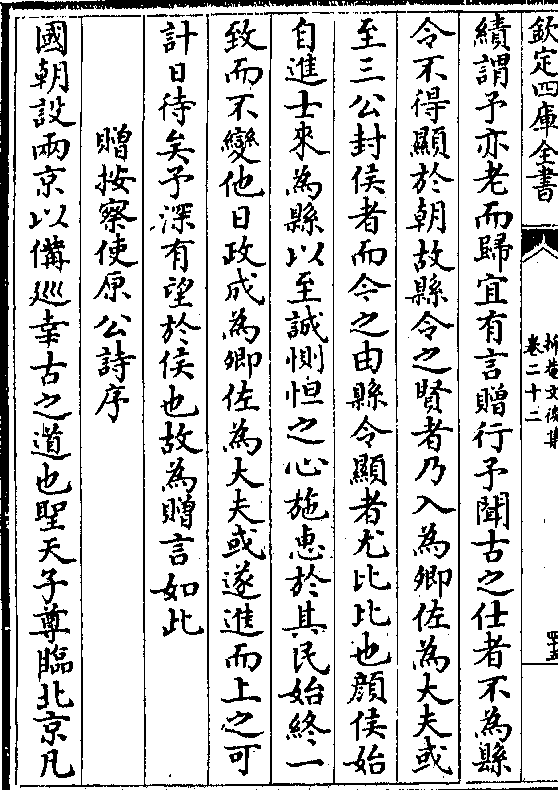 欽定四庫全書
卷二十二
績謂予亦老而歸宜有言贈行予聞古之仕者不為縣
令不得顯於朝故縣令之賢者乃入為卿佐為大夫或
至三公封侯者而今之由縣令顯者尤比比也顔侯始
自進士來為縣以至誠惻怛之心施惠於其民始終一
致而不變他日政成為卿佐為大夫或遂進而上之可
計日待矣予深有望於侯也故為贈言如此
贈按察使原公詩序
國朝設兩京以備巡幸古之道也聖天子尊臨北京凡